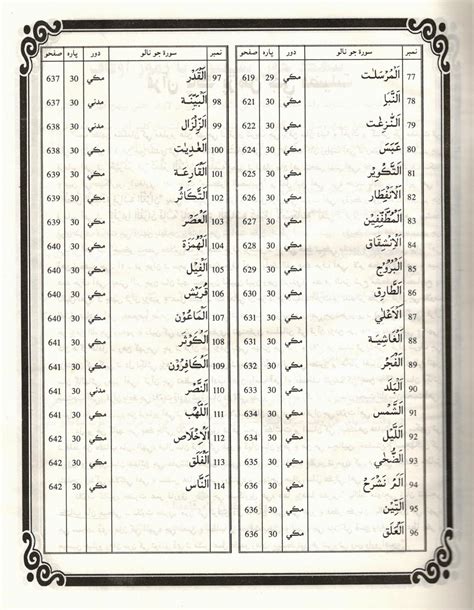 نمبر سورة جو نالو دور پاره صفحو
77 اَلْمُرْسَلٰت مڪي 29 619
78 اَلنَّبَا مڪي 30 621
79 اَلنّٰزِعٰت مڪي 30
80 عَبَسَ مڪي 30 624
81 اَلتَّكْوِيْر مڪي 30 625
82 اَلْاِنْفِطَار مڪي 30 626
83 اَلْمُطَفِّفِيْن مڪي 30
84 اَلْاِنْشِقَاق مڪي 30 628
85 اَلْبُرُوْج مڪي 30 629
86 اَلطَّارِق مڪي 30 630
87 اَلْاَعْلٰي مڪي 30
88 اَلْغَاشِيَة مڪي 30 631
89 اَلْفَجْر مڪي 30 632
90 اَلْبَلَد مڪي 30 633
91 اَلشَّمْس مڪي 30 634
92 اَلَّيْل مڪي 30 634
93 اَلضُّحٰي مڪي 30 635
94 اَلَمْ نَشْرَحْ مڪي 30 635
95 اَلتِّيْن مڪي 30 636
96 اَلْعَلَق مڪي 30 636
نمبر سورة جو نالو دور پاره صفحو
97 اَلْقَدْر مڪي 30 637
98 اَلْبَيِّنَة مدني 30 637
99 اَلزِّلْزَال مدني 30 638
100 اَلْعٰدِيٰت مڪي 30 638
101 اَلْقَارِعَة مڪي 30 639
102 اَلتَّكَاثُر مڪي 30 639
103 اَلْعَصْر مڪي 30 639
104 اَلْهُمَزَة مڪي 30 640
105 اَلْفِيْل مڪي 30 640
106 قُرَيْش مڪي 30 640
107 اَلْمَاعُوْن مڪي 30 640
108 اَلْكَوْثَر مڪي 30 641
109 اَلْكَافِرُوْن مڪي 30 641
110 اَلنَّصْر مدني 30 641
111 اَللَّهْب مڪي 30 641
112 اَلْاِخْلَاص مڪي 30 642
113 اَلْفَلَق مڪي 30 642
114 اَلنَّاس مڪي 30 642